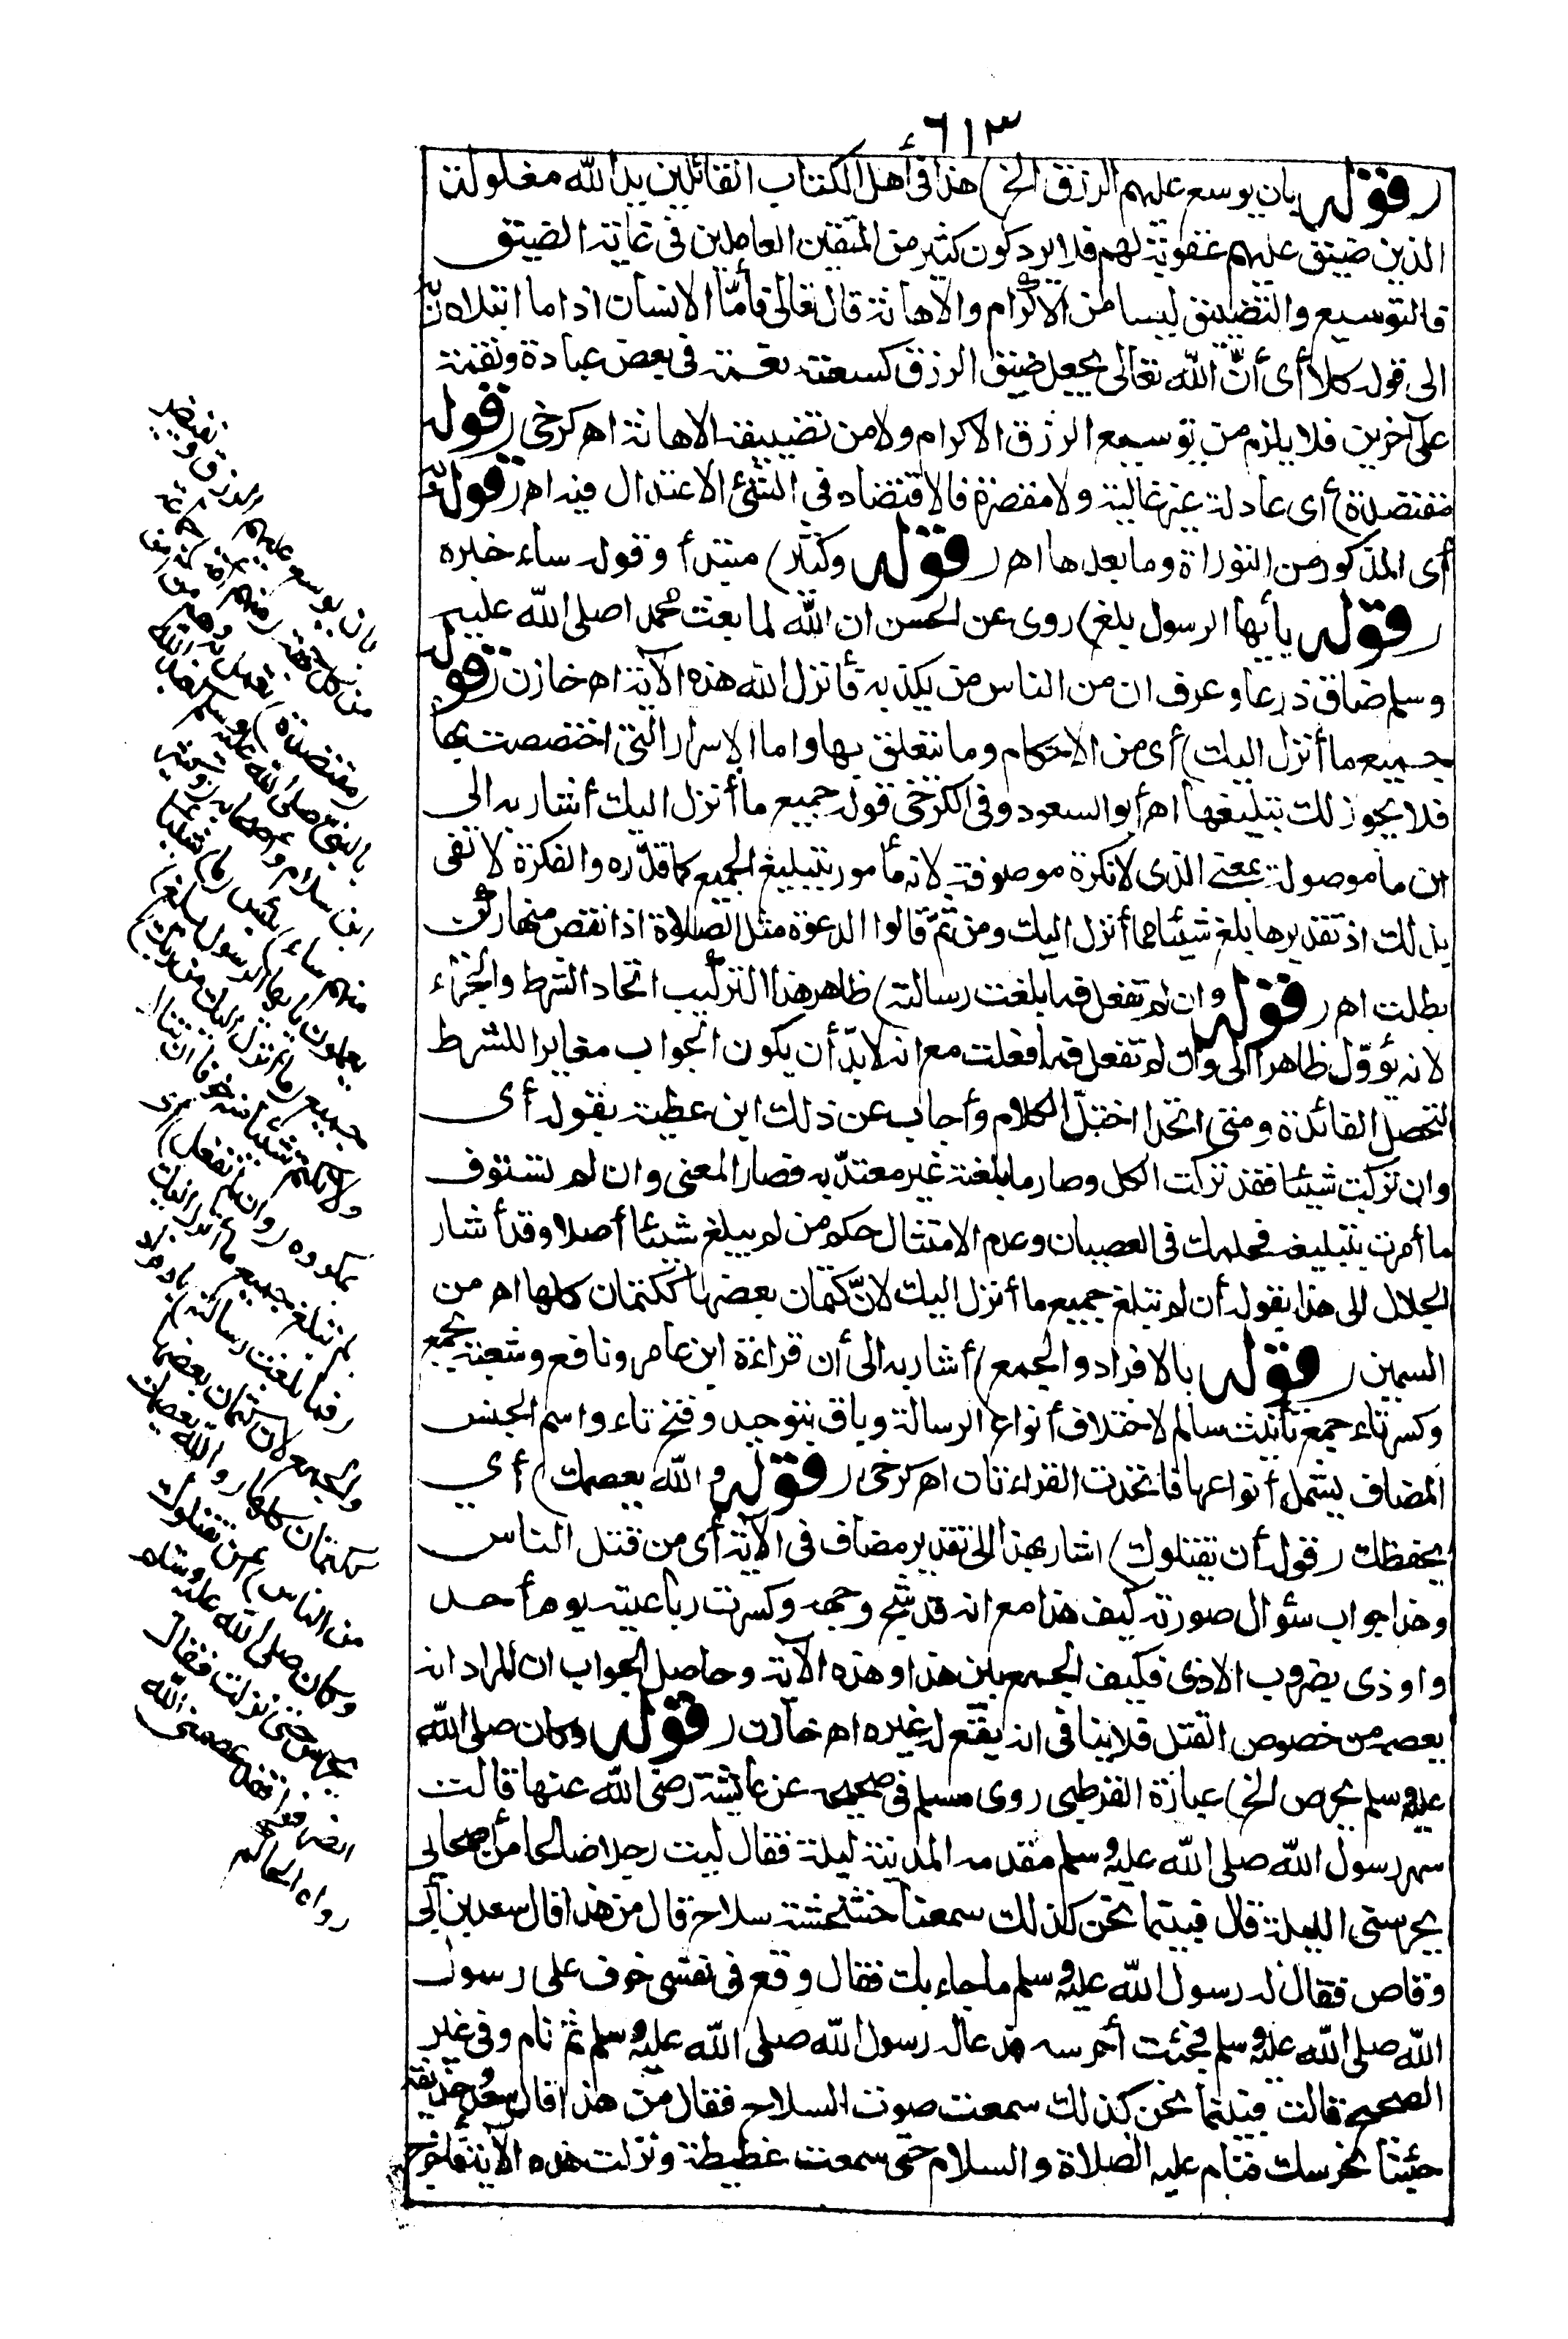 ٦١٣
(قوله بان يوسع عليهم الرزق الخ) هذا فى أهل الكتاب القائلين يد الله مغلولة
الذين ضيق عليهم عقوبة لهم فلا يرد كون كثير من المتقين العاملين فى غاية الضيق
فالتوسيع والتضييق ليسا من الاكرام والاهانة قال تعالى فأمّا الانسان اذا ما ابتلاه ربّه
الى قوله كلا أى أنّ الله تعالى يجعل ضيق الرزق كسعته نعمة فى بعض عباده ونقمة
على آخرين فلا يلزم من توسيع الرزق الاكرام ولا من تضييقه الاهانة اهـ كرخى (قوله
مقتصدة) أى عادلة غير غالية ولا مقصرة فالاقتصاد فى الشئ الاعتدال فيه اهـ (قوله به)
أى المذكور من التوراة وما بعدها اهـ (قوله وكثير) مبتدأ وقوله ساء خبره
(قوله يأيها الرسول بلغ) روى عن الحسن ان الله لما بعث محمدا صلى الله عليه
وسلم ضاق ذرعا وعرف ان من الناس من يكذبه فأنزل الله هذه الآية اهـ خازن (قوله
جميع ما أنزل اليك) أى من الاحكام وما يتعلق بها واما الاسرار التى اختصصت بها
فلا يجوز لك تبليغها اهـ أبو السعود وفى الكرخى قوله جميع ما أنزل اليك أشار به الى
ان ما موصولة بمعنى الذى لا نكرة موصوفة لانه مأمور بتبليغ الجميع كما قدّره والنكرة لا تفى
بذلك اذ تقديرها بلغ شيئا مما أنزل اليك ومن ثمّ قالوا الدعوة مثل الصلاة اذا نقص منها ركن
بطلت اهـ (قوله وان لم تفعل فما بلغت رسالته) ظاهر هذا التركيب اتحاد الشرط والجزاء
لانه يؤوّل ظاهرا الى وان لم تفعل فما فعلت مع انه لابدّ أن يكون الجواب مغايرا للشرط
لتحصل الفائدة ومتى اتحدا اختلّ الكلام وأجاب عن ذلك ابن عطية بقوله أى
وان تركت شيئا فقد تركت الكل وصار ما بلغته غير معتدّ به فصار المعنى وان لم تستوف
ما أمرت بتبليغه فحكمك فى العصيان وعدم الامتثال حكم من لم يبلغ شيئا أصلا وقد أشار
الجلال الى هذا بقوله أن لم تبلغ جميع ما أنزل اليك لانّ كتمان بعضها ككتمان كلها اهـ من
السمين (قوله بالافراد والجمع) أشار به الى أن قراءة ابن عامر ونافع وشعبة بجمع
وكسر تاء جمع تأنيث سالم لاختلاف أنواع الرسالة وباق بتوحيد وفتح تاء واسم الجنس
المضاف يشمل أنواعها فاتحدت القراءتان اهـ كرخى (قوله والله يعصمك) أي
يحفظك (قوله أن يقتلوك) اشار بهذا الى تقدير مضاف فى الآية أى من قتل الناس
وهذا جواب سئوال صورته كيف هذا مع انه قد شج وجهه وكسرت رباعيته يوم أحد
واوذى بضروب الاذى فكيف الجمع بين هذا وهذه الآية وحاصل الجواب ان المراد انه
يعصمه من خصوص القتل فلا ينافى انه يقع له غيره اهـ خازن (قوله وكان صلى الله
عليه وسلم يحرص الخ) عبارة القرطبى روى مسلم فى صحيحه عن عائشة رضى الله عنها قالت
سهر رسول الله صلى الله عليه وسلم مقدمه المدينة ليلة فقال ليت رجلا صالحا من أصحابى
يحرسنى الليلة قال فبينما نحن كذلك سمعنا خشخشة سلاح قال من هذا قال سعد بن أبى
وقاص فقال له رسول الله عليه وسلم ما جاء بك فقال وقع فى نفسى خوف على رسول
الله صلى الله عليه وسلم فجئت أحرسه فدعا له رسول الله صلى الله عليه وسلم ثم نام وفى غير
الصحيح قالت فبينما نحن كذلك سمعت صوت السلاح فقال من هذا قال سعد وحذيفة
جئنا نحرسك فنام عليه الصلاة والسلام حتى سمعت غطيطه ونزلت هذه الآية فأخرج
بان يوسع عليهم الرزق ويفيض
من كل جهة (منهم أمة) جماعة
(مقتصدة) تعمل به وهم من آمن
بالنبى صلى الله عليه وسلم كعبد الله
ابن سلام وأصحابه (وكثير
منهم ساء) بئس (ما) شيئا
يعملون يأيها الرسول بلغ)
جميع (ما أنزل اليك من ربك)
ولا تكتم شيئا منه خوفا ان تنال
بمكروه (وان لم تفعل) أى
لم تبلغ جميع ما أنزل اليك
(فما بلغت رسالته) بالافراد
والجمع لان كتمان بعضها
ككتمان كلها (والله يعصمك
من الناس) أن يقتلوك
وكان صلى الله عليه وسلم
يحرس حتى نزلت فقال
انصرفوا فقد عصمنى الله
رواه الحاكم